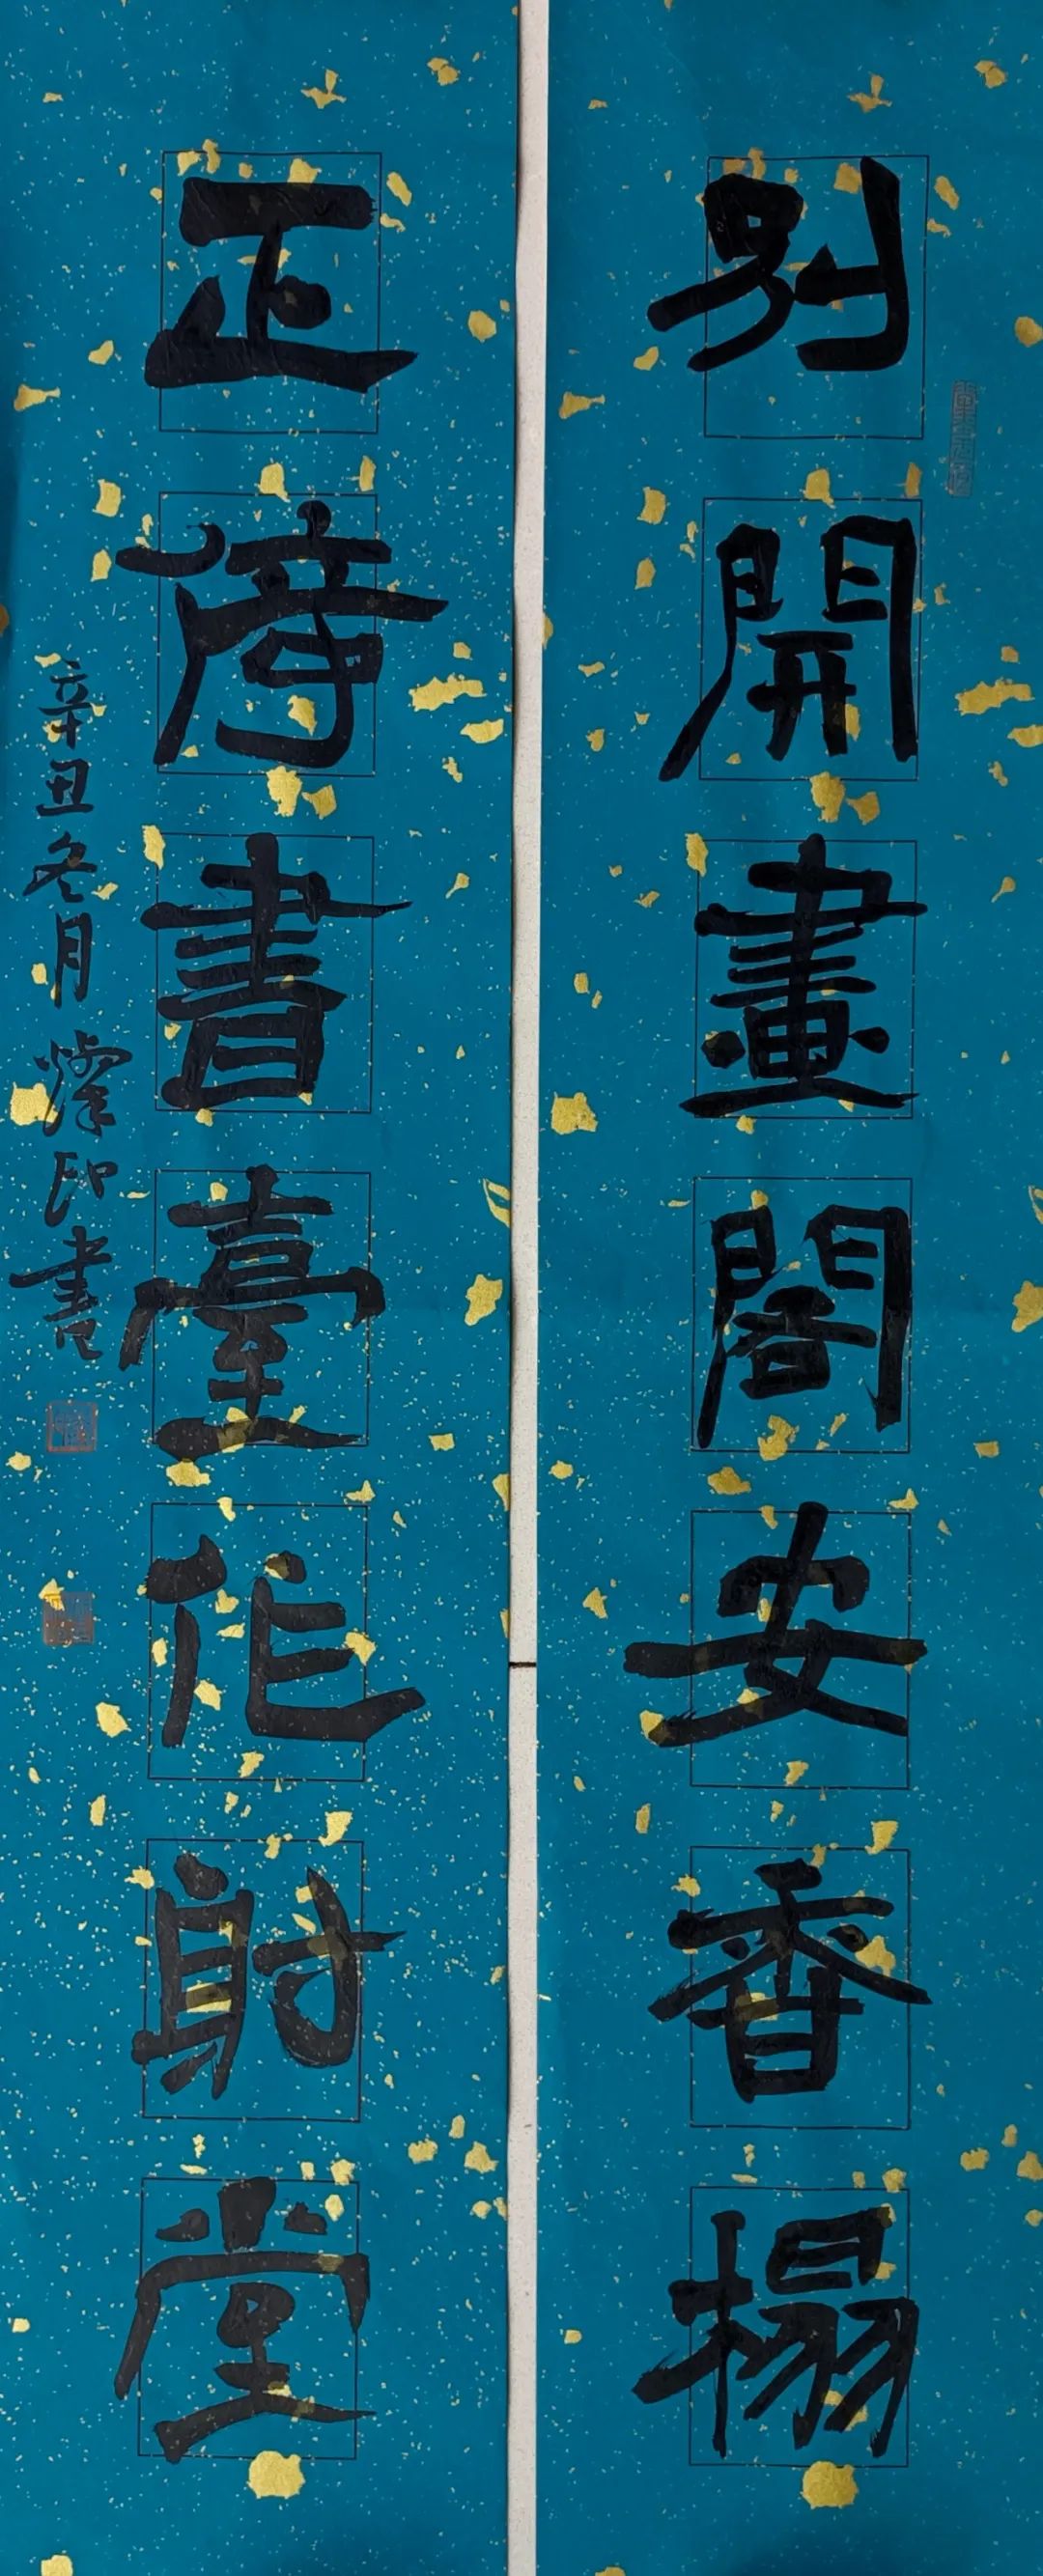 別開畫閣安香榻
正倚書臺作射堂
辛丑冬月印書